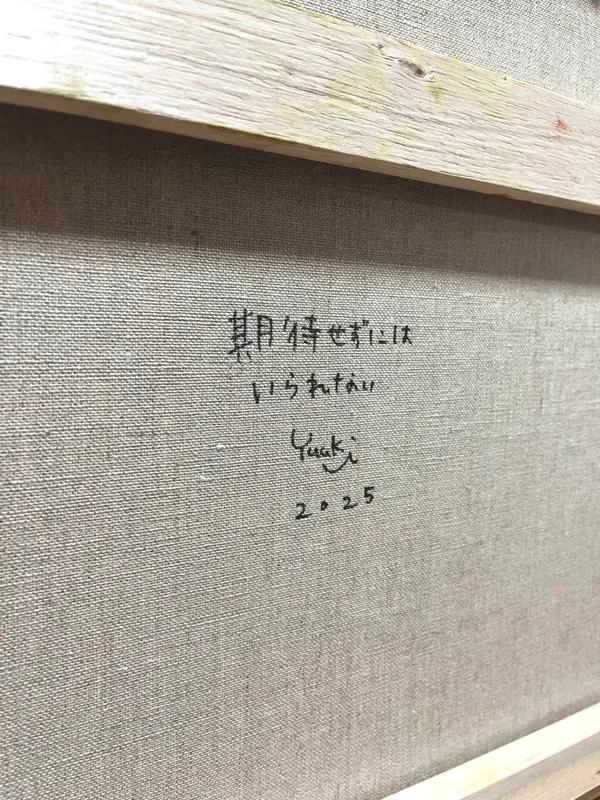 期待せずには
いられない
Yuuki
2025